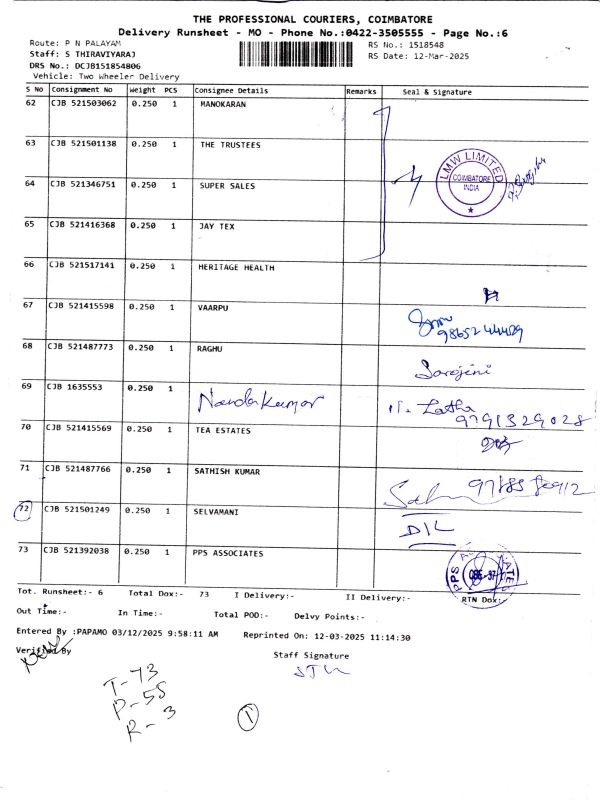 THE PROFESSIONAL COURIERS, COIMBATORE
Delivery Runsheet - MO - Phone No.:0422-3505555 - Page No.:6
Route: P N PALAYAM
RS No.: 1518548
Staff: S THIRAVIYARAJ
RS Date: 12-Mar-2025
DRS No.: DCJB151854806
Vehicle: Two Wheeler Delivery
S No Consignment No Weight PCS Consignee Details Remarks Seal & Signature
62 CJB 521503062 0.250 1 MANOKARAN
63 CJB 521501138 0.250 1 THE TRUSTEES
LMW LIMITED
COIMBATORE
INDIA
64 CJB 521346751 0.250 1 SUPER SALES
65 CJB 521416368 0.250 1 JAY TEX
66 CJB 521517141 0.250 1 HERITAGE HEALTH
67 CJB 521415598 0.250 1 VAARPU
68 CJB 521487773 0.250 1 RAGHU
Sarojini
69 CJB 1635553 0.250 1 Nandakumar
Latha
9791329028
70 CJB 521415569 0.250 1 TEA ESTATES
71 CJB 521487766 0.250 1 SATHISH KUMAR
72 CJB 521501249 0.250 1 SELVAMANI
D/L
73 CJB 521392038 0.250 1 PPS ASSOCIATES
PPS
Tot. Runsheet:- 6 Total Dox:- 73 I Delivery:- II Delivery:- RTN Dox:-
Out Time:- In Time:- Total POD:- Delvy Points:-
Entered By :PAPAMO 03/12/2025 9:58:11 AM Reprinted On: 12-03-2025 11:14:30
Verified By
Staff Signature
T-73
P-55
R-3
1